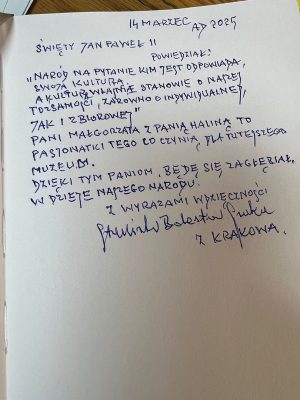 14 MARZEC AD 2025
ŚWIĘTY JAN PAWEŁ II
POWIEDZIAŁ:
„NARÓD NA PYTANIE KIM JEST ODPOWIADA,
SWOJĄ KULTURĄ
A KULTURA WŁAŚNIE STANOWI O NASZEJ
TOŻSAMOŚCI, ZARÓWNO INDYWIDUALNEJ,
JAK I ZBIOROWEJ"
PANI MAŁGORZATA Z PANIĄ HALINĄ TO
PASJONATKI TEGO CO CZYNIĄ DLA TUTEJSZEGO
MUZEUM.
DZIĘKI TYM PANIOM. BĘDĘ SIĘ ZAGŁĘBIAŁ,
W DZIEJE NASZEGO NARODU.
Z WYRAZAMI WDZIĘCZNOŚCI
Z KRAKOWA.